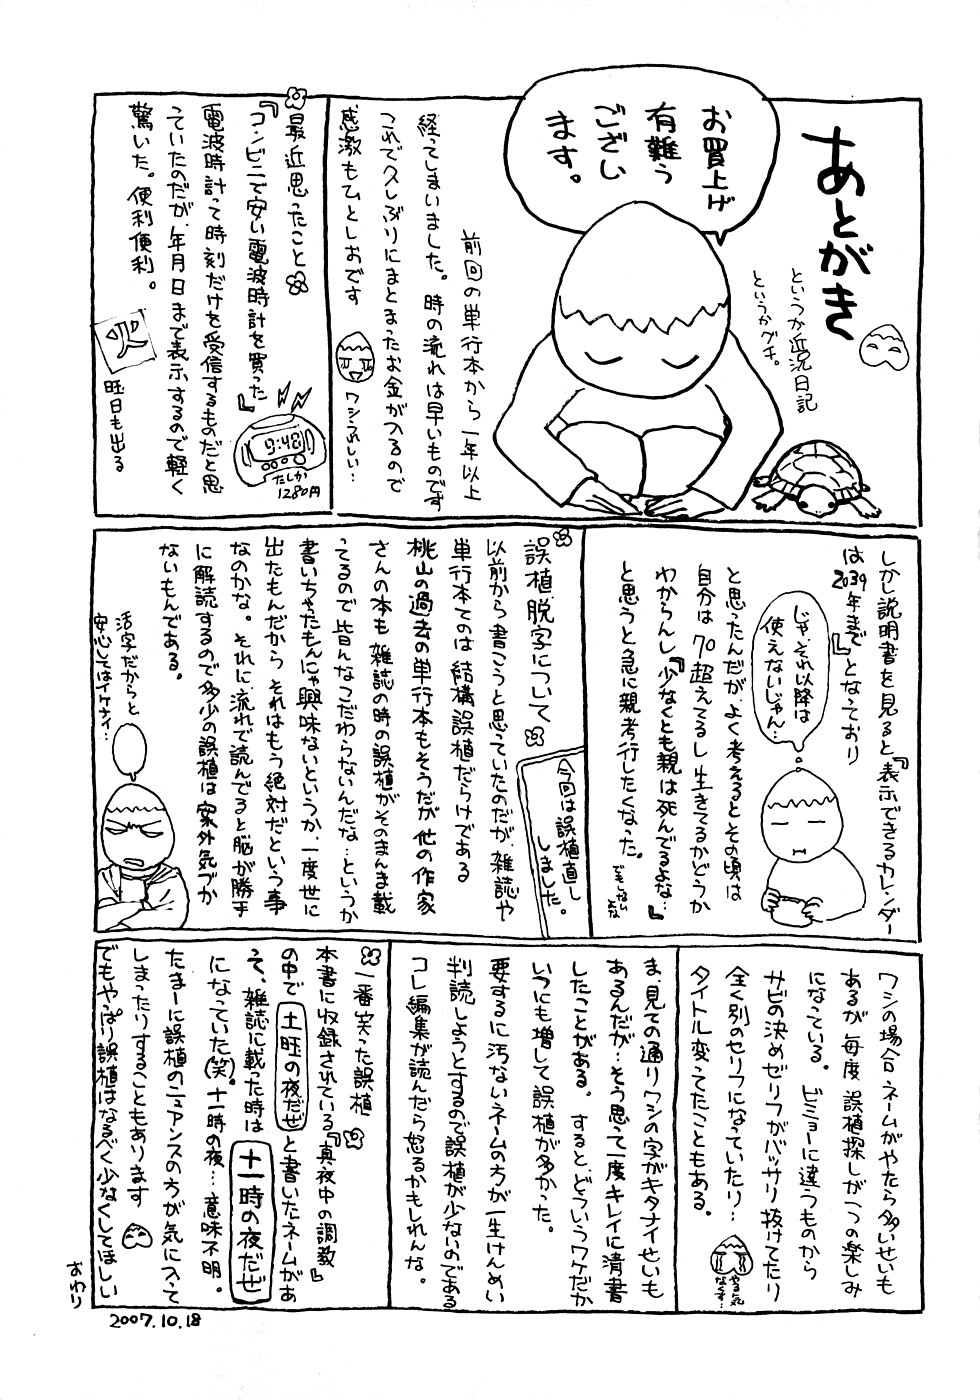 あとがき
というか近況日記
というかグチ。
お買上げ
有難う
ござい
ます。
前回の単行本から一年以上
経ってしまいました。時の流れは早いものです
これで久しぶりにまとまったお金が入るので
感激もひとしおです
ワシうれしい…
最近思ったこと
『コンビニで安い電波時計を買った』
電波時計って時刻だけを受信するものだと思
っていたのだが、年月日まで表示するので軽く
驚いた。便利便利。
9:48
たしか
1280円
火
曜日も出る
しかし説明書を見ると『表示できるカレンダー
は2039年まで』となっており
じゃ、それ以降は
使えないじゃん…
と思ったんだが、よく考えるとその頃は
自分は70超えてるし生きてるかどうか
わからんし『少なくとも親は死んでるよな…』
と思うと急に親孝行したくなった。
誤植脱字について
以前から書こうと思っていたのだが、雑誌や
単行本てのは結構誤植だらけである
桃山の過去の単行本もそうだが他の作家
さんの本も雑誌の時の誤植がそのまんま載
ってるので皆んなこだわらないんだな…というか
書いちゃたもんにゃ興味ないというか、一度世に
出たもんだからそれはもう絶対だという事
なのかな。それに流れで読んでると脳が勝手
に解読するので多少の誤植は案外気づか
ないもんである。
今回は誤植直し
しました。
活字だからと
安心してはイケナイ…
ワシの場合ネームがやたら多いせいも
あるが毎度誤植探しが一つの楽しみ
になっている。ビミョーに違うものから
サビの決めゼリフがバッサリ抜けてたり
全く別のセリフになっていたり…
タイトル変ってたこともある。
やる気
なくす…
ま、見ての通りワシの字がキタナイせいも
あるんだが…そう思って一度キレイに清書
したことがある。すると、どういうワケだか
いつにも増して誤植が多かった。
要するに汚ないネームの方が一生けんめい
判読しようとするので誤植が少ないのである
コレ編集が読んだら怒るかもしれんな。
一番笑った誤植
本書に収録されている『真夜中の調教』
の中で土曜の夜だぜと書いたネームがあ
って、雑誌に載った時は十一時の夜だぜ
になっていた(笑)。十一時の夜…意味不明。
たまーに誤植のニュアンスの方が気に入って
しまったりすることもあります
でもやっぱり誤植はなるべく少なくしてほしい
おわり
2007.10.18